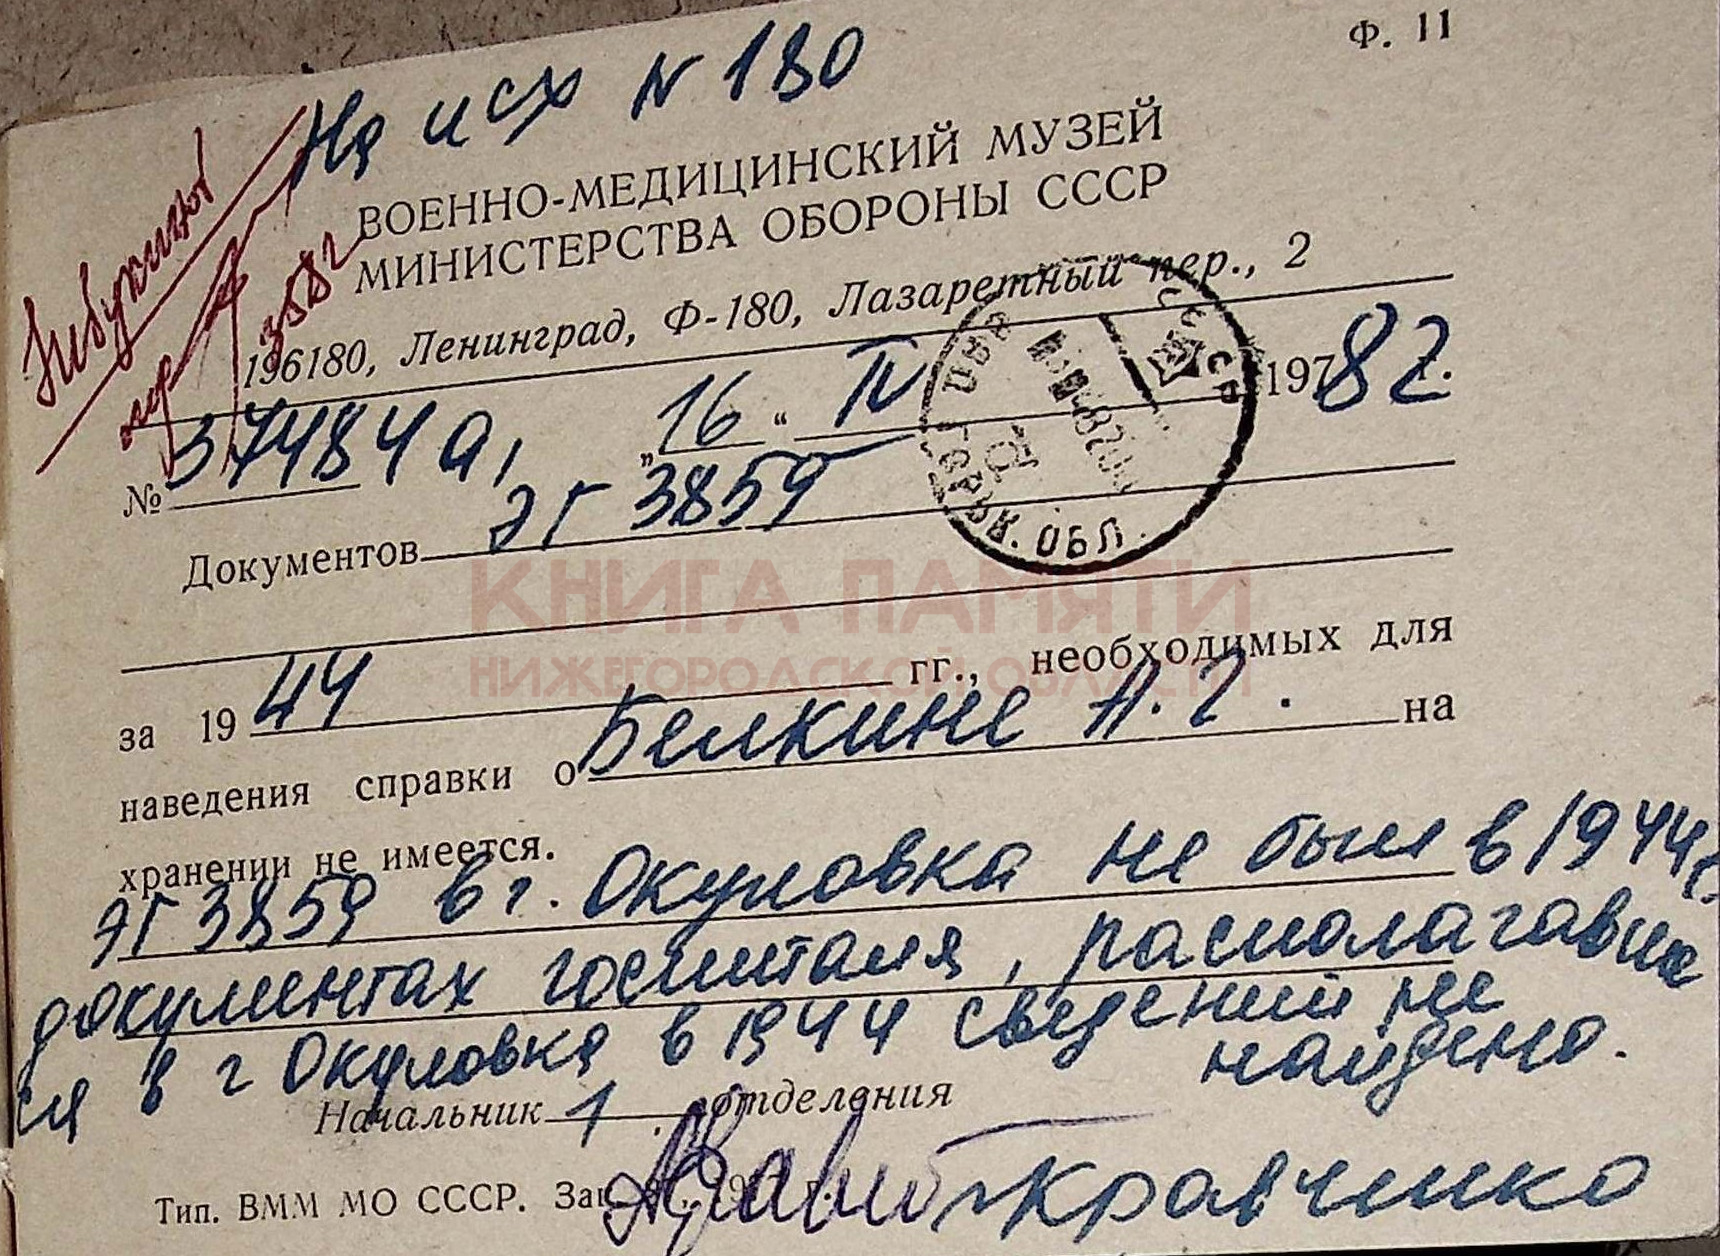 Ф. 11
На исх № 180
ВОЕННО-МЕДИЦИНСКИЙ МУЗЕЙ
МИНИСТЕРСТВА ОБОРОНЫ СССР
196180, Ленинград, Ф-180, Лазаретный пер., 2
№ 37484 а, „16" IV 19782 г.
Документов ЭГ 3859
КНИГА ПАМЯТИ
НИЖЕГОРОДСКОЙ ОБЛАСТИ
за 19 44 гг., необходимых для
наведения справки о Белкине А. Г. на
хранении не имеется.
ЭГ 3859 в г. Окуловка не был в 1944 г.
документах госпиталя, располагавших
ся в г Окуловка в 1944 сведений не
найдено.
Начальник 1 отделения
Тип. ВММ МО СССР.
Кравченко
ОБЛ.